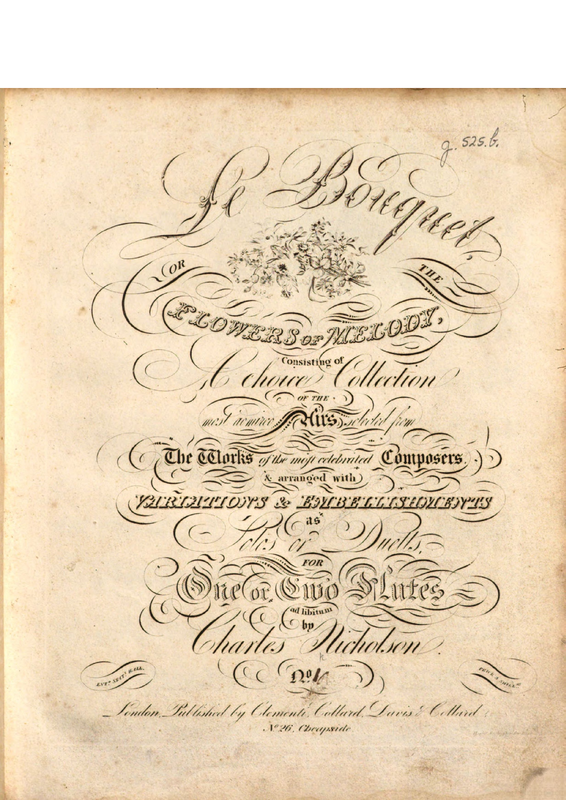 g. 525.b.
Le Bouquet,
OR THE
FLOWERS OF MELODY,
Consisting of
A choice Collection
OF THE
most admired Airs, selected from
The Works of the most celebrated Composers,
& arranged with
VARIATIONS & EMBELLISHMENTS
as
Solos or Duetts,
FOR
One or Two Flutes
ad libitum
by
Charles Nicholson.
ENTD. STATS. HALL.
No. 1
London, Published by Clementi, Collard, Davis & Collard
No. 26, Cheapside